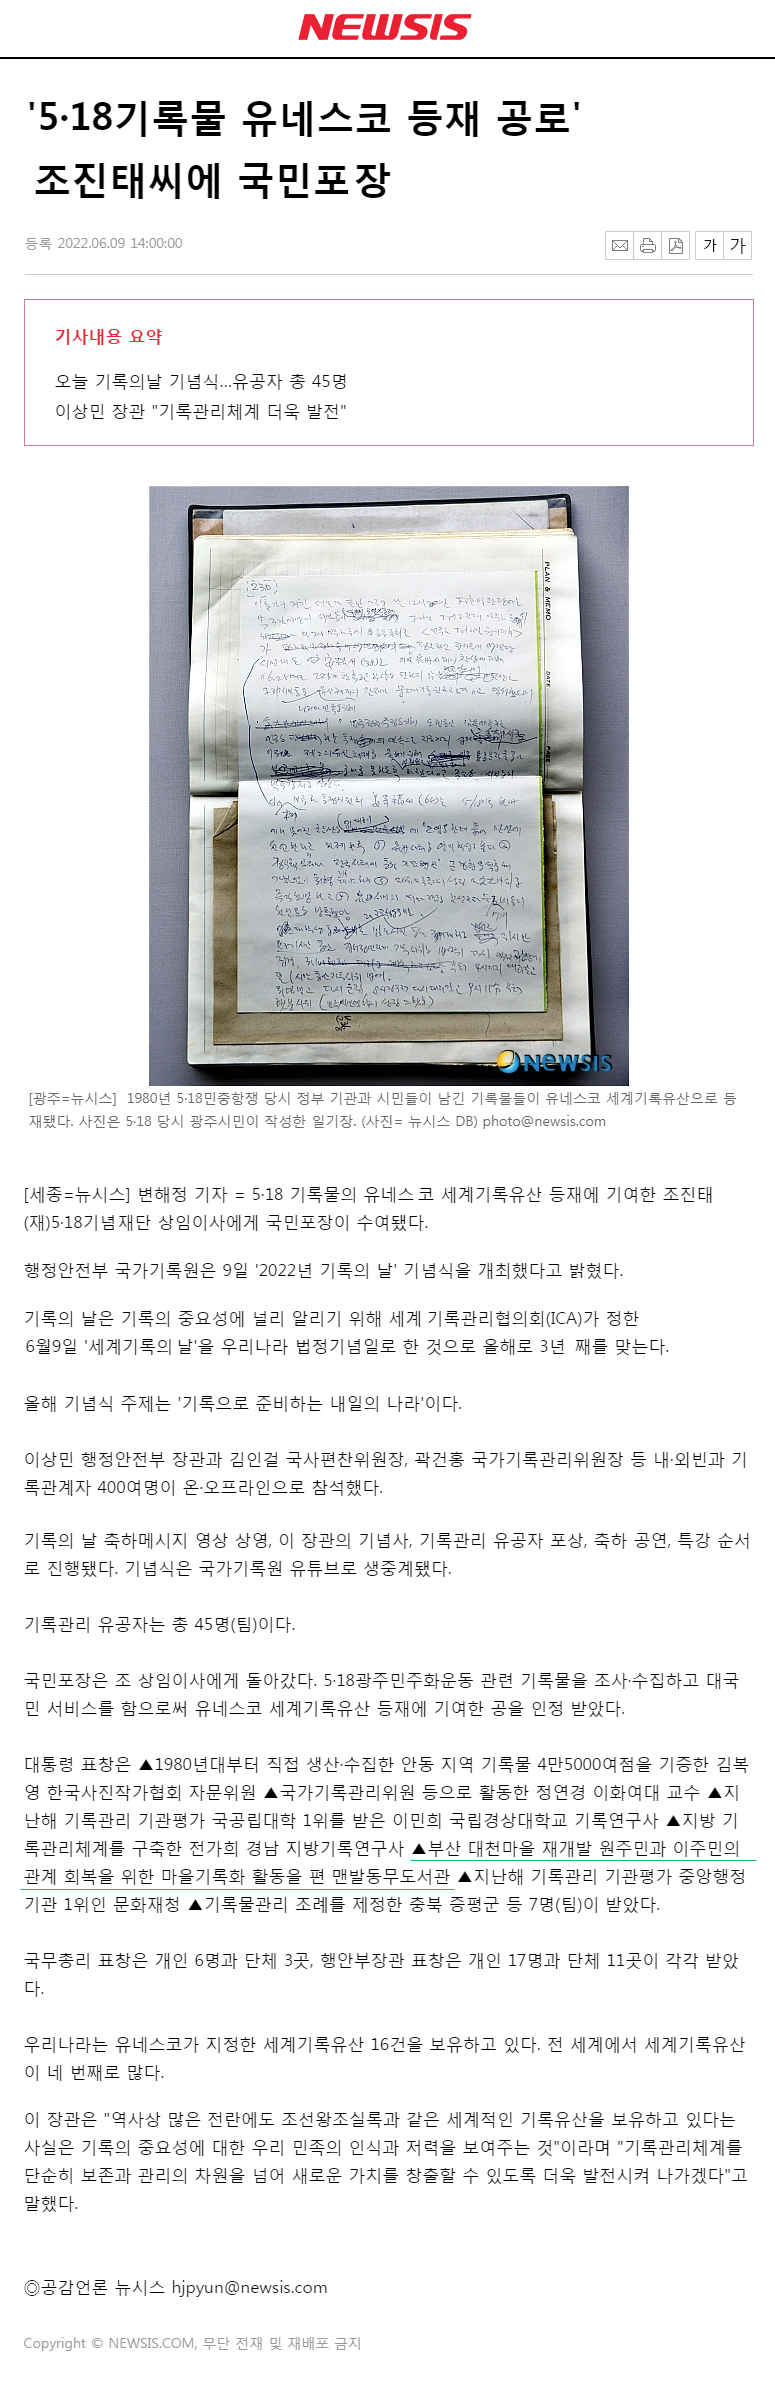 NEWSIS
'5·18기록물 유네스코 등재 공로'
조진태씨에 국민포장
등록 2022.06.09 14:00:00
가 가
기사내용 요약
오늘 기록의날 기념식...유공자 총 45명
이상민 장관 "기록관리체계 더욱 발전"
PLAN & MEMO
DATE
PAGE
newsis
[광주=뉴시스] 1980년 5·18민중항쟁 당시 정부 기관과 시민들이 남긴 기록물들이 유네스코 세계기록유산으로 등
재됐다. 사진은 5·18 당시 광주시민이 작성한 일기장. (사진= 뉴시스 DB) photo@newsis.com
[세종=뉴시스] 변해정 기자 = 5·18 기록물의 유네스코 세계기록유산 등재에 기여한 조진태
(재)5·18기념재단 상임이사에게 국민포장이 수여됐다.
행정안전부 국가기록원은 9일 '2022년 기록의 날' 기념식을 개최했다고 밝혔다.
기록의 날은 기록의 중요성에 널리 알리기 위해 세계 기록관리협의회(ICA)가 정한
6월9일 '세계기록의 날'을 우리나라 법정기념일로 한 것으로 올해로 3년 째를 맞는다.
올해 기념식 주제는 '기록으로 준비하는 내일의 나라'이다.
이상민 행정안전부 장관과 김인걸 국사편찬위원장, 곽건홍 국가기록관리위원장 등 내·외빈과 기
록관계자 400여명이 온·오프라인으로 참석했다.
기록의 날 축하메시지 영상 상영, 이 장관의 기념사, 기록관리 유공자 포상, 축하 공연, 특강 순서
로 진행됐다. 기념식은 국가기록원 유튜브로 생중계됐다.
기록관리 유공자는 총 45명(팀)이다.
국민포장은 조 상임이사에게 돌아갔다. 5·18광주민주화운동 관련 기록물을 조사·수집하고 대국
민 서비스를 함으로써 유네스코 세계기록유산 등재에 기여한 공을 인정 받았다.
대통령 표창은 ▲1980년대부터 직접 생산·수집한 안동 지역 기록물 4만5000여점을 기증한 김복
영 한국사진작가협회 자문위원 ▲국가기록관리위원 등으로 활동한 정연경 이화여대 교수 ▲지
난해 기록관리 기관평가 국공립대학 1위를 받은 이민희 국립경상대학교 기록연구사 ▲지방 기
록관리체계를 구축한 전가희 경남 지방기록연구사 ▲부산 대천마을 재개발 원주민과 이주민의
관계 회복을 위한 마을기록화 활동을 편 맨발동무도서관 ▲지난해 기록관리 기관평가 중앙행정
기관 1위인 문화재청 ▲기록물관리 조례를 제정한 충북 증평군 등 7명(팀)이 받았다.
국무총리 표창은 개인 6명과 단체 3곳, 행안부장관 표창은 개인 17명과 단체 11곳이 각각 받았
다.
우리나라는 유네스코가 지정한 세계기록유산 16건을 보유하고 있다. 전 세계에서 세계기록유산
이 네 번째로 많다.
이 장관은 "역사상 많은 전란에도 조선왕조실록과 같은 세계적인 기록유산을 보유하고 있다는
사실은 기록의 중요성에 대한 우리 민족의 인식과 저력을 보여주는 것"이라며 "기록관리체계를
단순히 보존과 관리의 차원을 넘어 새로운 가치를 창출할 수 있도록 더욱 발전시켜 나가겠다"고
말했다.
◎공감언론 뉴시스 hjpyun@newsis.com
Copyright © NEWSIS.COM, 무단 전재 및 재배포 금지